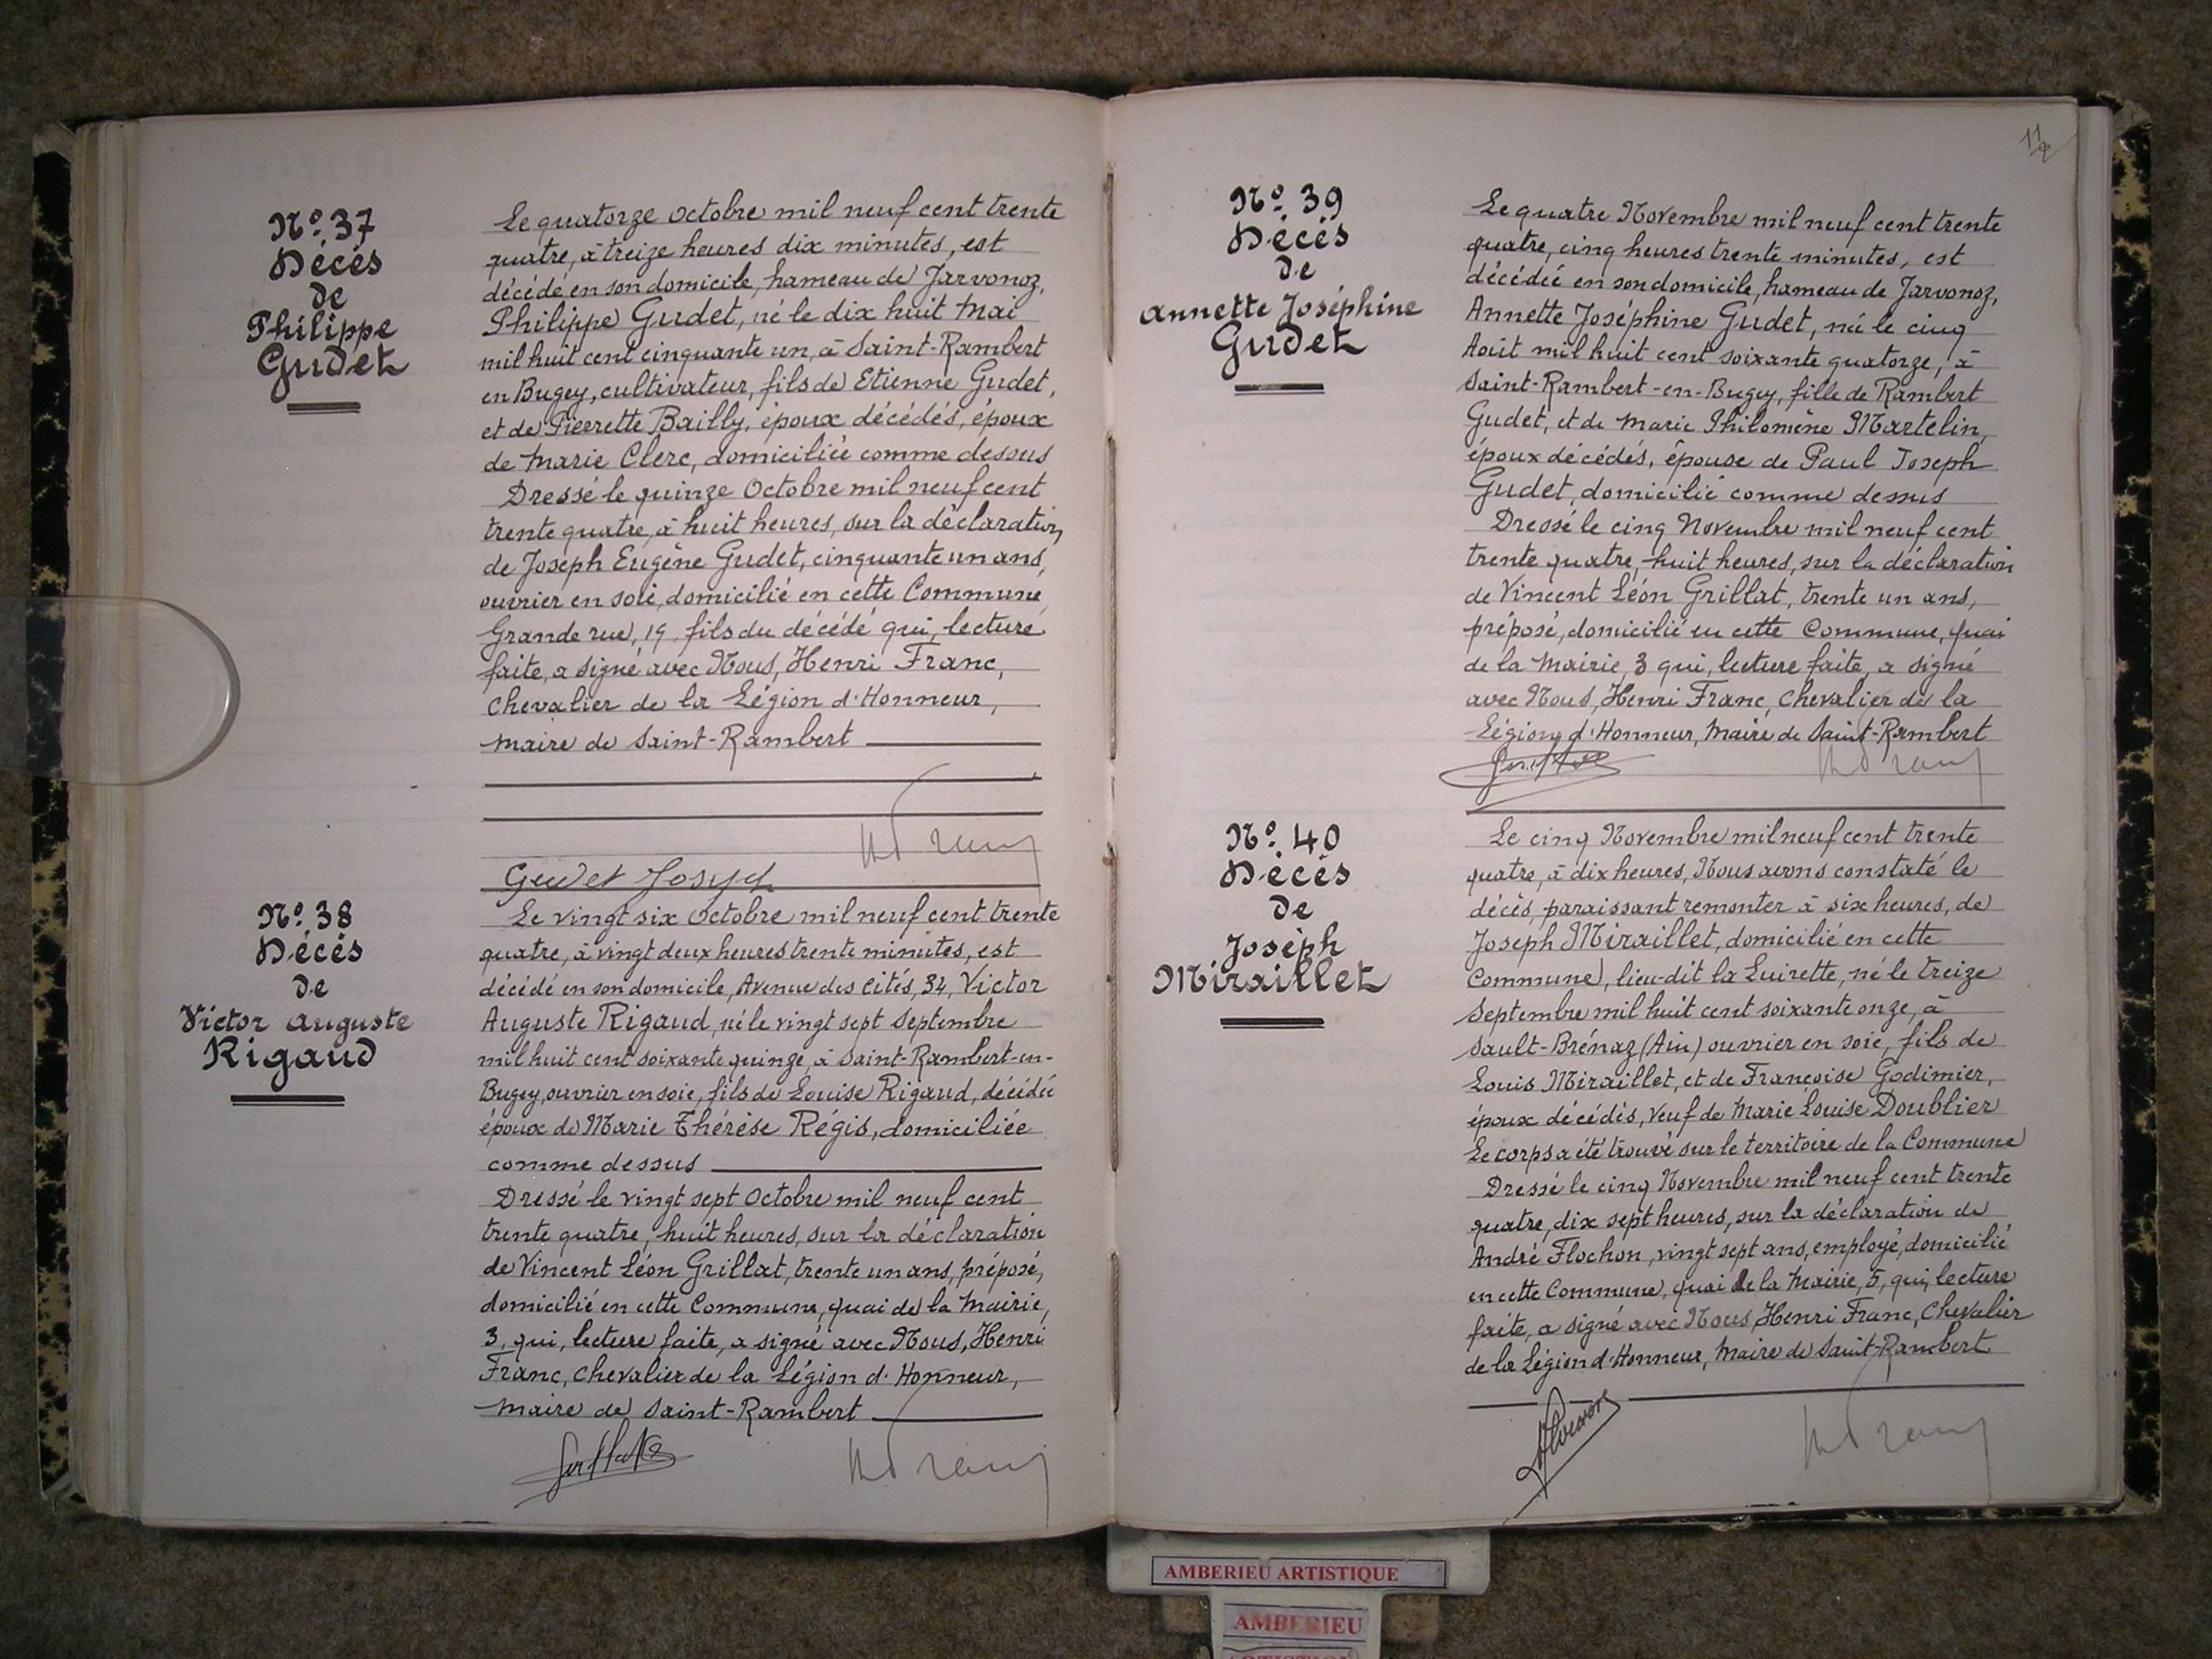 N° 37
Décès
de
Philippe
Gudet
Le quatorze Octobre mil neuf cent trente
quatre, à treize heures dix minutes, est
décédé en son domicile, hameau de Jarvonoz,
Philippe Gudet, né le dix huit Mai
mil huit cent cinquante un, à Saint-Rambert
en Bugey, cultivateur, fils de Etienne Gudet,
et de Pierrette Bailly, époux décédés, époux
de Marie Clerc, domiciliée comme dessus
Dressé le quinze Octobre mil neuf cent
trente quatre, à huit heures, sur la déclaration
de Joseph Eugène Gudet, cinquante un ans,
ouvrier en soie, domicilié en cette Commune
Grande rue, 19, fils du décédé qui, lecture
faite, a signé avec Nous, Henri Franc,
Chevalier de la Légion d'Honneur,
Maire de Saint-Rambert
Gudet Joseph
N° 38
Décès
de
Victor Auguste
Rigaud
Le vingt six Octobre mil neuf cent trente
quatre, à vingt deux heures trente minutes, est
décédé en son domicile, Avenue des Cités, 34, Victor
Auguste Rigaud, né le vingt sept Septembre
mil huit cent soixante quinze, à Saint-Rambert-en-
Bugey, ouvrier en soie, fils de Louise Rigaud, décédée
époux de Marie Thérèse Régis, domiciliée
comme dessus
Dressé le vingt sept Octobre mil neuf cent
trente quatre, huit heures, sur la déclaration
de Vincent Léon Grillat, trente un ans, préposé,
domicilié en cette Commune, quai de la Mairie,
3, qui, lecture faite, a signé avec Nous, Henri
Franc, Chevalier de la Légion d'Honneur,
Maire de Saint-Rambert
N° 39
Décès
de
Annette Joséphine
Gudet
Le quatre Novembre mil neuf cent trente
quatre, cinq heures trente minutes, est
décédée en son domicile, hameau de Jarvonoz,
Annette Joséphine Gudet, née le cinq
Août mil huit cent soixante quatorze, à
Saint-Rambert-en-Bugey, fille de Rambert
Gudet, et de Marie Philomène Martelin,
époux décédés, épouse de Paul Joseph
Gudet, domicilié comme dessus
Dressé le cinq Novembre mil neuf cent
trente quatre, huit heures, sur la déclaration
de Vincent Léon Grillat, trente un ans,
préposé, domicilié en cette Commune, quai
de la Mairie, 3 qui, lecture faite, a signé
avec Nous, Henri Franc, Chevalier de la
Légion d'Honneur, Maire de Saint-Rambert
N° 40
Décès
de
Joseph
Miraillet
Le cinq Novembre mil neuf cent trente
quatre, à dix heures, Nous avons constaté le
décès, paraissant remonter à six heures, de
Joseph Miraillet, domicilié en cette
Commune, lieu-dit la Luirette, né le treize
Septembre mil huit cent soixante onze, à
Sault-Brénaz (Ain) ouvrier en soie, fils de
Louis Miraillet, et de Françoise Godimier,
époux décédés, veuf de Marie Louise Doublier
Le corps a été trouvé sur le territoire de la Commune
Dressé le cinq Novembre mil neuf cent trente
quatre, dix sept heures, sur la déclaration de
André Flochon, vingt sept ans, employé, domicilié
en cette Commune, quai de la Mairie, 5, qui, lecture
faite, a signé avec Nous, Henri Franc, Chevalier
de la Légion d'Honneur, Maire de Saint-Rambert
AMBERIEU ARTISTIQUE
AMBERIEU